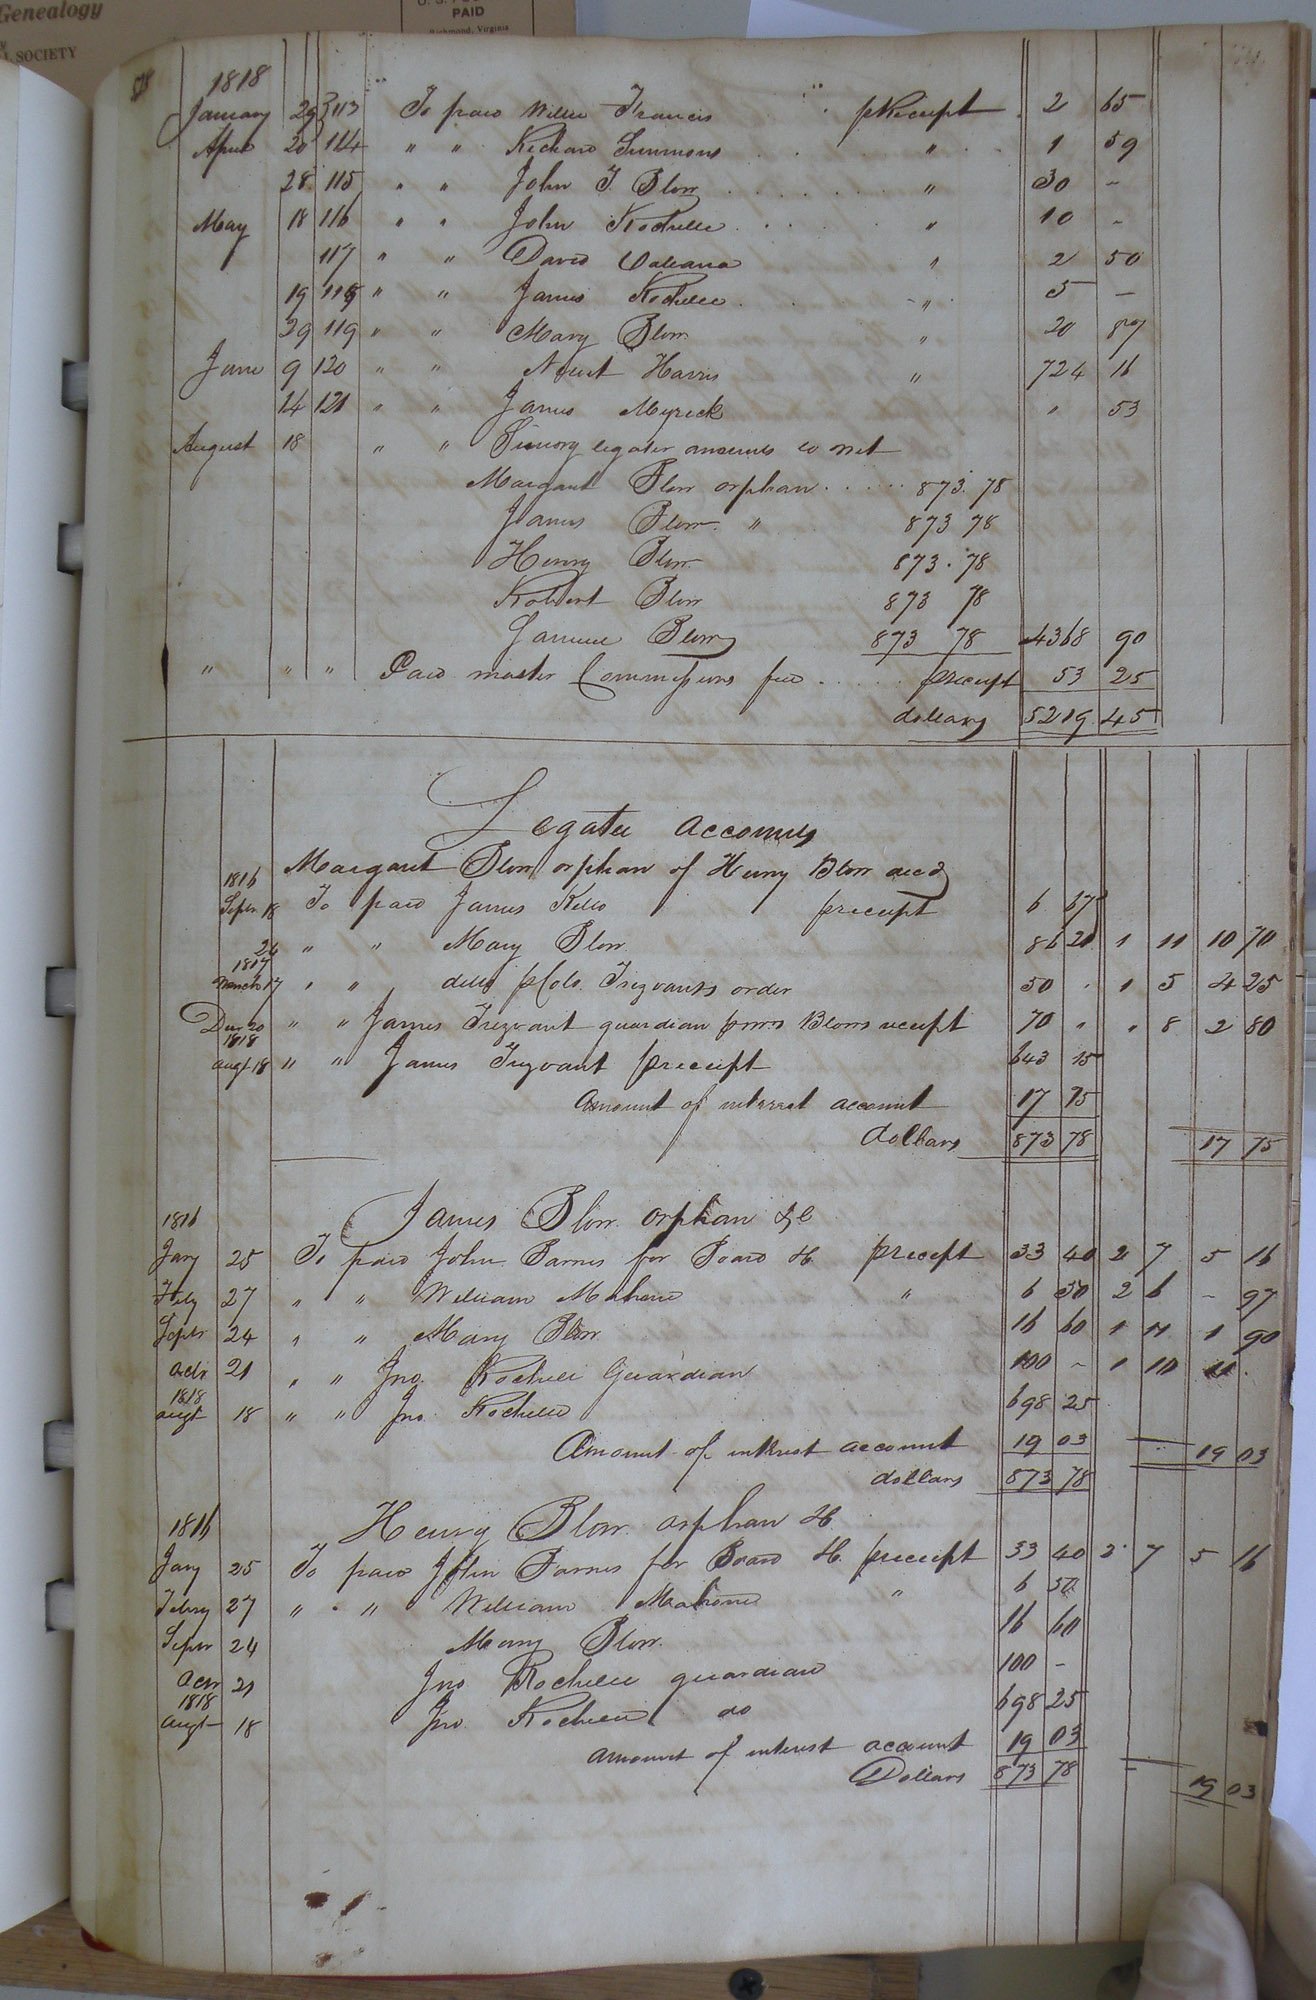 Genealogy
L SOCIETY
PAID
Richmond, Virginia
1818
January 29 113 To paid Willie Francis preceipt 2 65
April 20 114 " " Richard Simmons " 1 59
28 115 " " John T. Blow " 30 -
May 18 116 " " John Rochelle " 10 -
117 " " David " 2 50
19 118 " " James Rochelle " 5 -
29 119 " " Mary Blow " 20 87
June 9 120 " " Newit Harris " 724 16
14 121 " " James Myrick " 53
August 18 " " legatee amounts to wit
Margaret Blow orphan 873.78
James Blow " 873 78
Henry Blow 873.78
Robert Blow 873 78
Samuel Blow 873 78 4368 90
" " " Paid master Commissioners fees preceipt 53 25
dollars 5219.45
Legatee accounts
Margaret Blow orphan of Henry Blow decd
1816
Septr 18 To paid James Kello preceipt 6 67
24 " " Mary Blow 86 20 1 11 10 70
1817
March 17 " " ditto pCols. Trezvants order 50 . 1 5 4 25
Decr 20 " " James Trezvant guardian Blows receipt 70 " " 8 2 80
1818
augt 18 " " James Trezvant preceipt 643 15
Amount of interest account 17 75
dollars 873 78 17 75
James Blow orphan &c
1816
Jany 25 To paid John Barnes for Board &c preceipt 33 40 2 7 5 16
Feby 27 " " William Mahone " 6 50 2 6 - 97
Septr 24 " " Mary Blow 16 60 1 11 1 90
Octr 21 " " Jno. Rochelle Guardian 100 - 1 10 11 .
1818
augt 18 " " Jno Rochelle 698 25
Amount of interest account 19 03 19 03
dollars 873 78
Henry Blow orphan &c
1816
Jany 25 To paid John Barnes for Board &c. preceipt 33 40 2 7 5 16
Febry 27 " " William Mahone " 6 50
Septr 24 Mary Blow 16 60
Octr 21 Jno Rochelle guardian 100 -
1818
augt 18 Jno Rochelle do 698 25
amount of interest account 19 03
Dollars 873 78 19 03